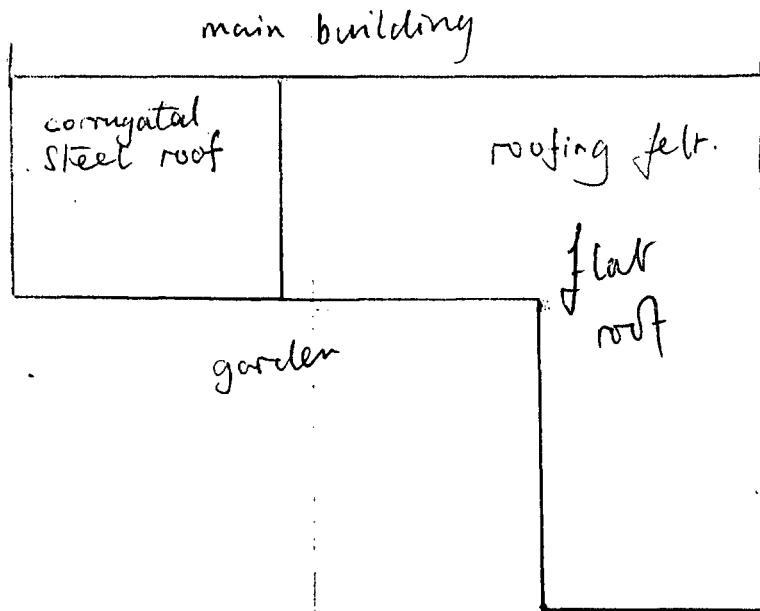 main building
corrugatal
steel roof
roofing felt.
flat
roof
garden